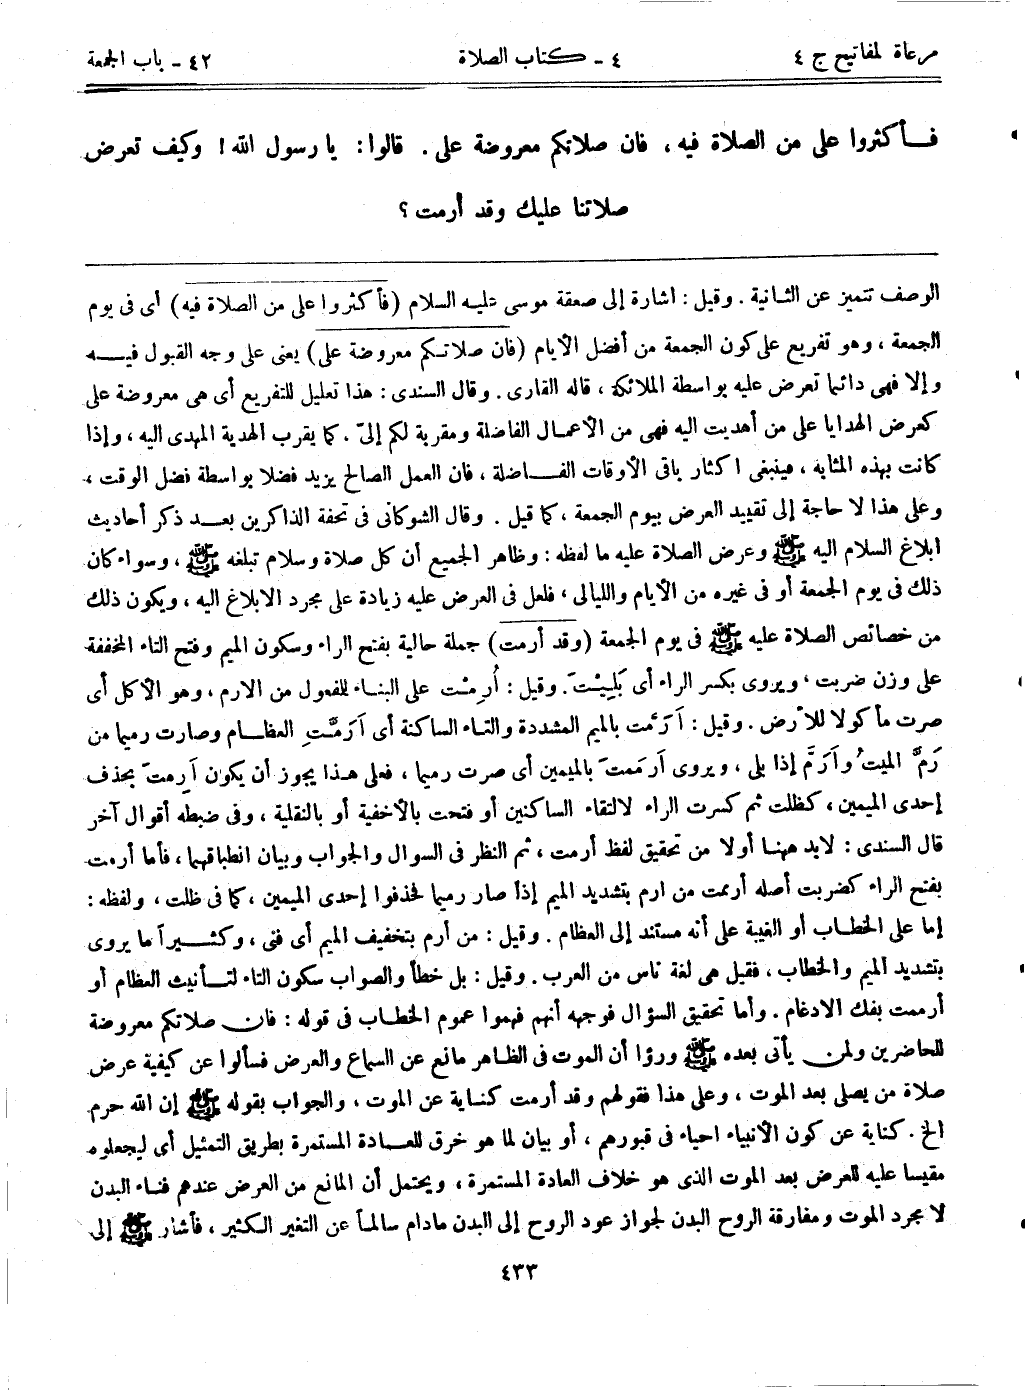 مرعاة المفاتيح ج ٤
٤ - كتاب الصلاة
٤٢ - باب الجمعة
فأكثروا على من الصلاة فيه، فان صلاتكم معروضة على. قالوا: يا رسول الله! وكيف تعرض
صلاتنا عليك وقد أرمت؟
الوصف تتميز عن الثانية. وقيل: اشارة إلى صعقة موسى عليه السلام (فأكثروا على من الصلاة فيه) أى فى يوم
الجمعة، وهو تفريع على كون الجمعة من أفضل الأيام (فان صلاتكم معروضة على) يعنى على وجه القبول فيه
وإلا فهى دائما تعرض عليه بواسطة الملائكة، قاله القارى. وقال السندى: هذا تعليل للتفريع أى هى معروضة على
كعرض الهدايا على من أهديت اليه فهى من الأعمال الفاضلة ومقربة لكم إلىّ. كما يقرب الهدية المهدى اليه، وإذا
كانت بهذه المثابة، فينبغى اكثار باقى الأوقات الفاضلة، فان العمل الصالح يزيد فضلا بواسطة فضل الوقت،
وعلى هذا لا حاجة إلى تقييد العرض بيوم الجمعة، كما قيل. وقال الشوكانى فى تحفة الذاكرين بعد ذكر أحاديث
ابلاغ السلام اليه ﷺ وعرض الصلاة عليه ما لفظه: وظاهر الجميع أن كل صلاة وسلام تبلغه ﷺ، وسواء كان
ذلك فى يوم الجمعة أو فى غيره من الأيام والليالى، فلعل فى العرض عليه زيادة على مجرد الابلاغ اليه، ويكون ذلك
من خصائص الصلاة عليه ﷺ فى يوم الجمعة (وقد أرمت) جملة حالية بفتح الراء وسكون الميم وفتح التاء المخففة
على وزن ضربت، ويروى بكسر الراء أى بَلِيْتَ. وقيل: أُرِمْت على البناء للفعول من الارم، وهو الأكل أى
صرت مأكولا للأرض. وقيل: اَرَمَّت بالميم المشددة والتاء الساكنة أى اَرَمَّتِ العظام وصارت رميما من
رَمَّ الميتُ واَرَمَّ إذا بلى، ويروى اَرمَمتَ بالميمين أى صرت رميما، فعلى هذا يجوز أن يكون اَرِمتَ بحذف
إحدى الميمين، كظلت ثم كسرت الراء لالتقاء الساكنين أو فتحت بالأخفية أو بالنقلية، وفى ضبطه أقوال آخر
قال السندى: لابد ههنا أولا من تحقيق لفظ أرمت، ثم النظر فى السوال والجواب وبيان انطباقهما، فأما أرمت
بفتح الراء كضربت أصله أرممت من ارم بتشديد الميم إذا صار رميما فحذفوا إحدى الميمين، كما فى ظلت، ولفظه:
إما على الخطاب أو الغيبة على أنه مستند إلى العظام. وقيل: من أرم بتخفيف الميم أى فنى، وكثيراً ما يروى
بتشديد الميم والخطاب، فقيل هى لغة ناس من العرب. وقيل: بل خطأ والصواب سكون التاء لتأنيث العظام أو
أرممت بفك الادغام. وأما تحقيق السؤال فوجهه أنهم فهموا عموم الخطاب فى قوله: فان صلاتكم معروضة
للحاضرين ولمن يأتى بعده ﷺ ورؤا أن الموت فى الظاهر مانع عن السماع والعرض فسألوا عن كيفية عرض
صلاة من يصلى بعد الموت، وعلى هذا فقولهم وقد أرمت كناية عن الموت، والجواب بقوله ﷺ إن الله حرم
الخ. كناية عن كون الأنبياء احياء فى قبورهم، أو بيان لما هو خرق للعادة المستمرة بطريق التمثيل أى ليجعلوه
مقيسا عليه للعرض بعد الموت الذى هو خلاف العادة المستمرة، ويحتمل أن المانع من العرض عندهم فناء البدن
لا مجرد الموت ومفارقة الروح البدن لجواز عود الروح إلى البدن مادام سالماً عن التغير الكثير، فأشار ﷺ إلى
٤٣٣